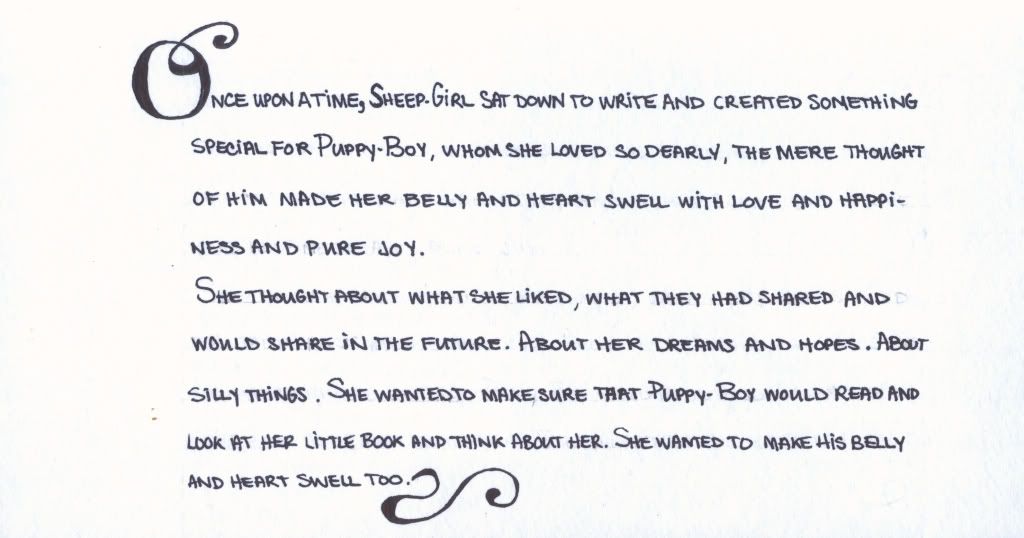 Once upon a time, Sheep-Girl sat down to write and created something
special for Puppy-Boy, whom she loved so dearly, the mere thought
of him made her belly and heart swell with love and happi-
ness and pure joy.
She thought about what she liked, what they had shared and
would share in the future. About her dreams and hopes. About
silly things. She wanted to make sure that Puppy-Boy would read and
look at her little book and think about her. She wanted to make his belly
and heart swell too.